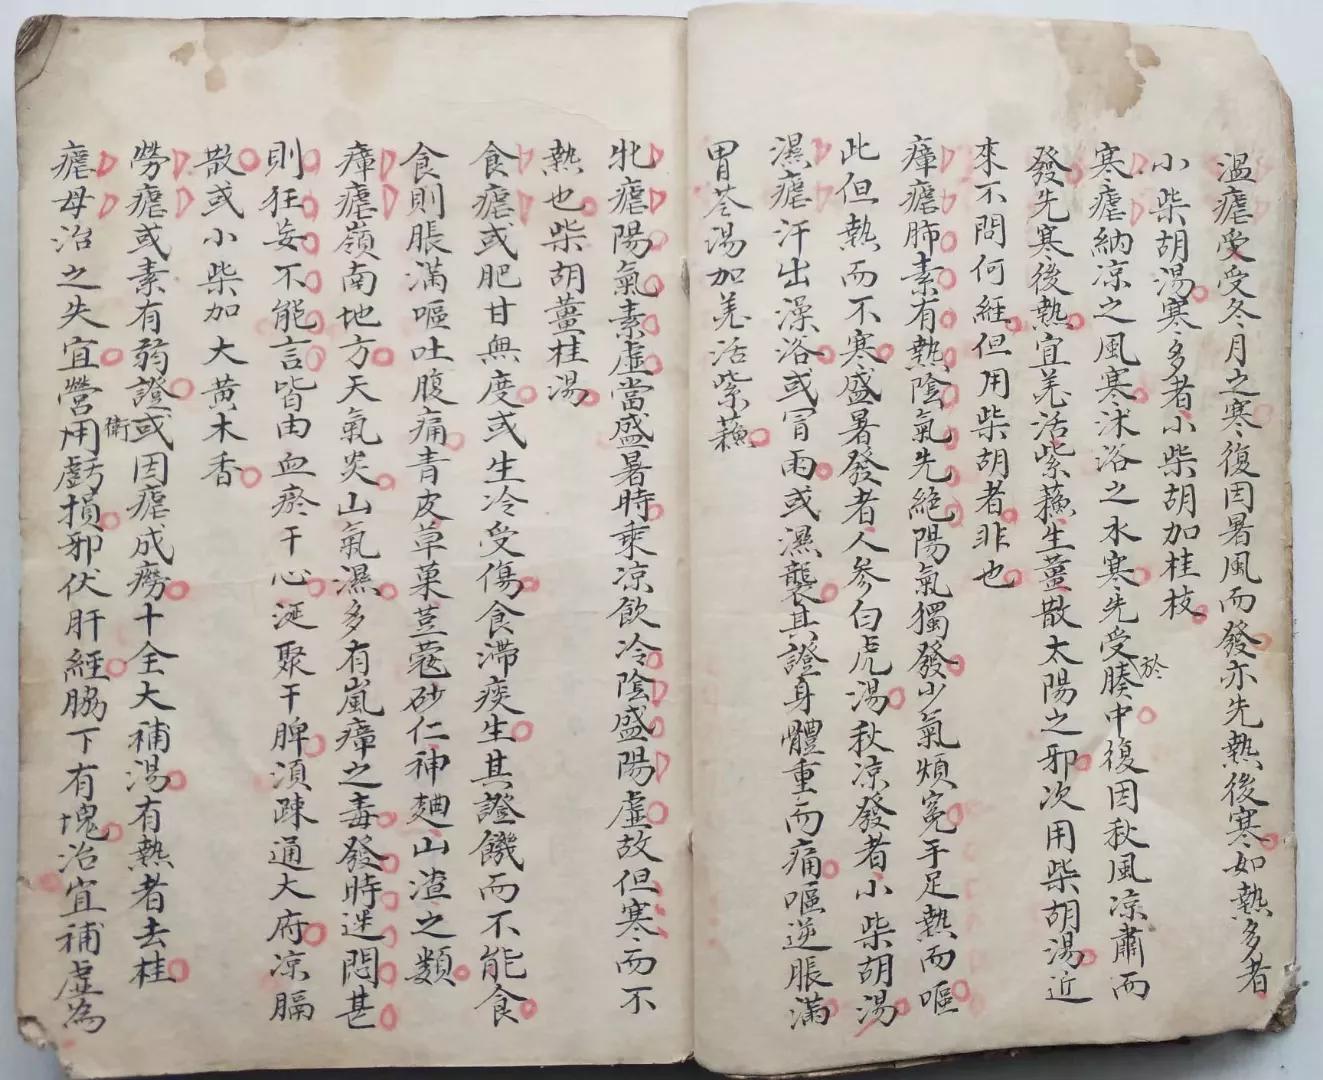 溫瘧受受冬月之寒復因暑風而發亦先熱後寒如熱多者
小柴胡湯寒多者小柴胡加桂枝
寒瘧納凉之風寒沭浴之水寒先受於腠中復因秋風凉肅而
發先寒後熱宜羌活紫蘓生薑散太陽之邪次用柴胡湯近
來不問何經但用柴胡者非也
瘴瘧肺素有熱陰氣先絕陽氣獨發少氣煩冤手足熱而嘔
此但熱而不寒盛暑發者人參白虎湯秋凉發者小柴胡湯
濕瘧汗出澡浴或冒雨或濕襲其證身體重而痛嘔逆脹滿
胃苓湯加羌活紫蘓
牝瘧陽氣素虛當盛暑時乘凉飲冷陰盛陽虛故但寒而不
熱也柴胡薑桂湯
食瘧或肥甘無度或生冷受傷食滯痰生其證饑而不能食
食則脹滿嘔吐腹痛青皮草菓荳蔻砂仁神麯山渣之類
瘴瘧嶺南地方天氣炎山氣濕多有嵐瘴之毒發時迷悶甚
則狂妄不能言皆由血瘀于心涎聚于脾須疎通大府凉膈
散或小柴加大黃木香
勞瘧或素有弱證或因瘧成癆十全大補湯有熱者去桂
瘧母治之失宜營衛用虧損邪伏肝經脇下有塊治宜補虛為